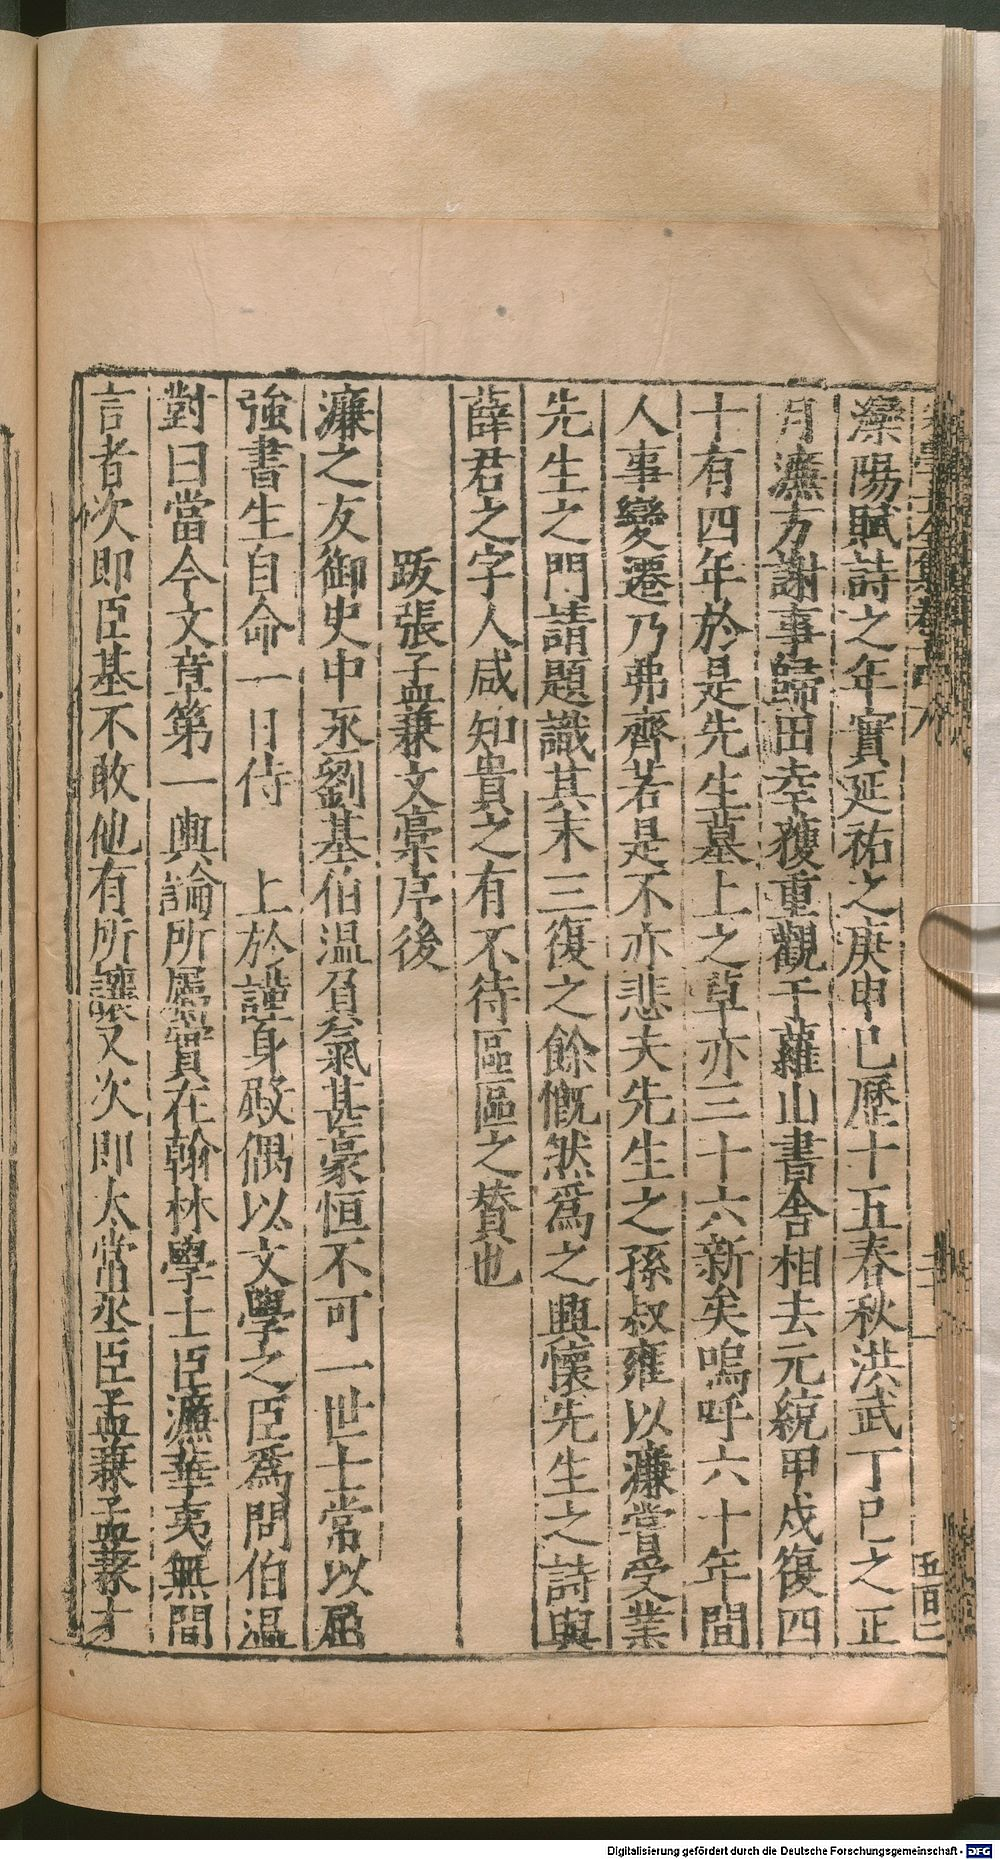 灤陽賦詩之年實延祐之庚申已歷十五春秋洪武丁巳之正
月濂方謝事歸田幸獲重觀于蘿山書舍相去元統甲戌復四
十有四年於是先生墓上之草亦三十六新矣嗚呼六十年間
人事變遷乃弗齊若是不亦悲夫先生之孫叔雍以濂嘗受業
先生之門請題識其末三復之餘慨然爲之興懷先生之詩與
薛君之字人咸知貴之有不待區區之賛也
跋張孟兼文藁序後
濂之友御史中丞劉基伯温負氣甚豪恒不可一世士常以屈
強書生自命一日侍　上於謹身殿偶以文學之臣爲問伯温
對曰當今文章第一輿論所屬實在翰林學士臣濂華夷無間
言者次即臣基不敢他有所讓又次即太常丞臣孟兼孟兼才
五百七
Digitalisierung gefördert durch die Deutsche Forschungsgemeinschaft - DFG